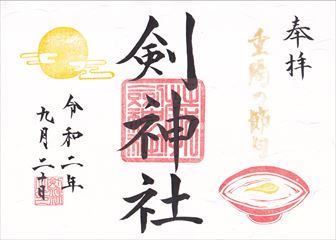 奉拝
重陽の節句
剣神社
令和二年
九月二十日